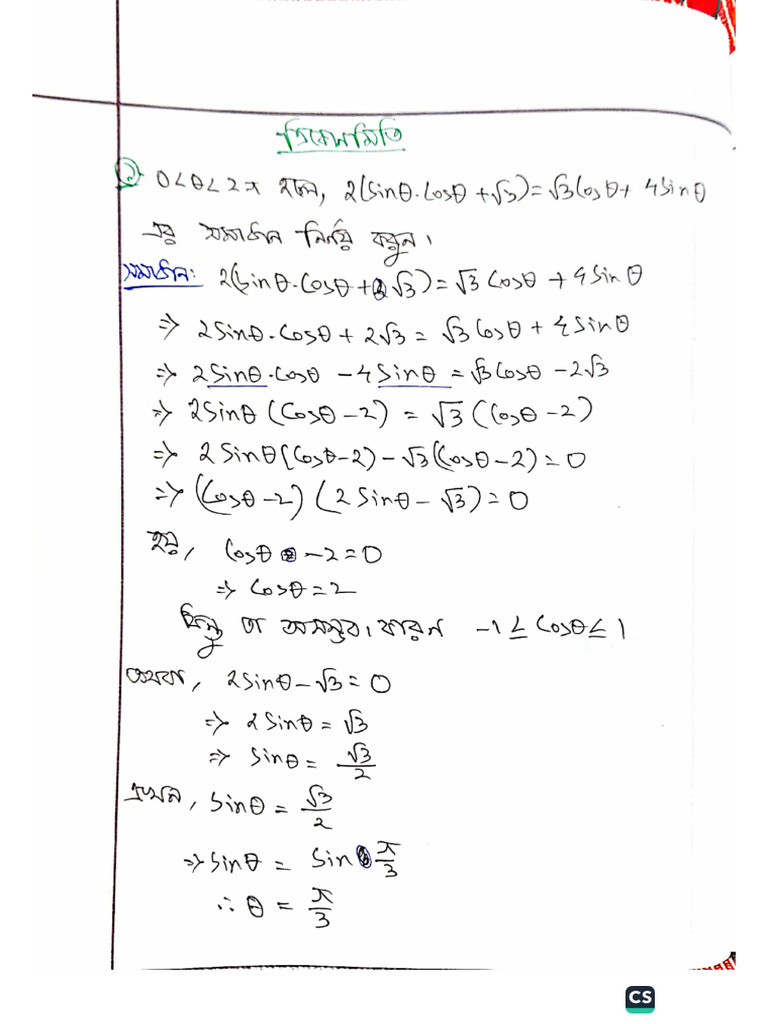 ত্রিকোনমিতি
০<θ<2π হলে, 2(sinθ.cosθ+√3)=√3cosθ+4sinθ
এর সমাধান নির্ণয় করুন।
সমাধান: 2(sinθ.cosθ+√3)=√3cosθ+4sinθ
=> 2sinθ.cosθ+2√3=√3cosθ+4sinθ
=> 2sinθ.cosθ-4sinθ=√3cosθ-2√3
=> 2sinθ(cosθ-2)=√3(cosθ-2)
=> 2sinθ(cosθ-2)-√3(cosθ-2)=0
=> (cosθ-2)(2sinθ-√3)=0
হয়, cosθ-2=0
=> cosθ=2
কিন্তু তা অসম্ভব। কারন -1≤cosθ≤1
অথবা, 2sinθ-√3=0
=> 2sinθ=√3
=> sinθ=√3/2
এখন, sinθ=√3/2
=> sinθ=sin π/3
∴ θ=π/3
CS